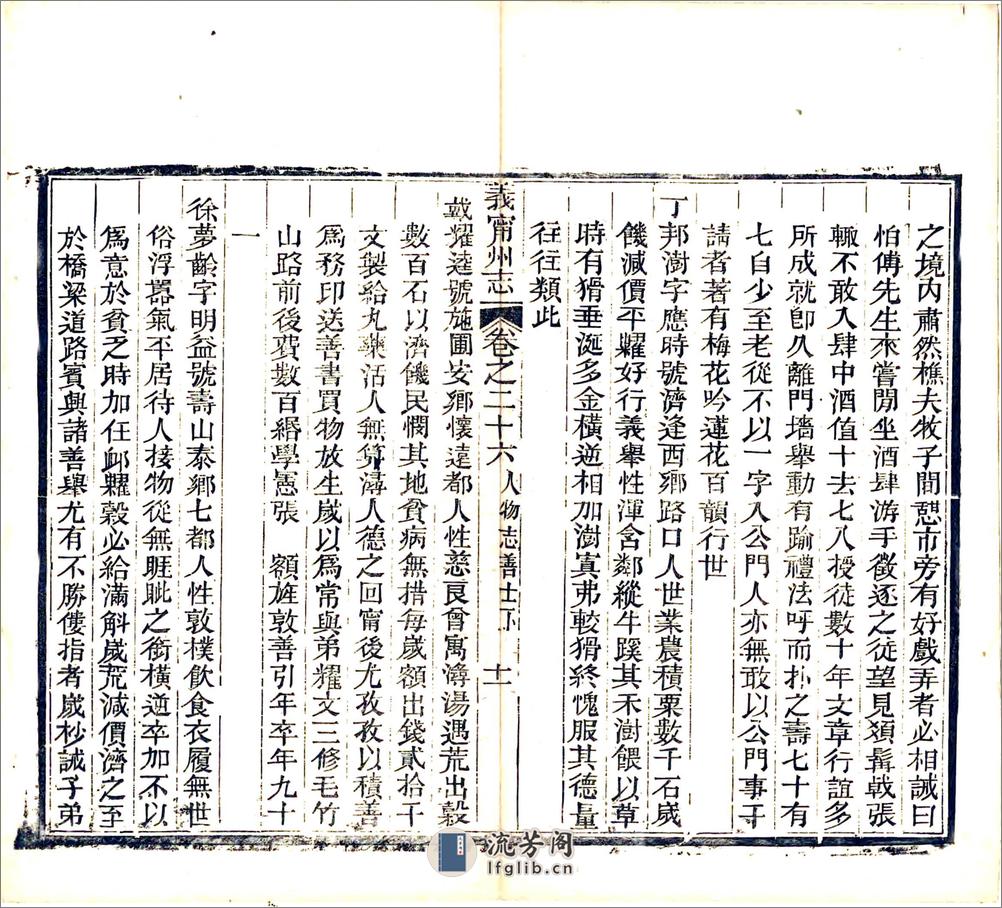 之境內肅然樵夫牧子間憩市旁有好戲弄者必相誡曰
怕傳先生來嘗閒坐酒肆游手徵逐之徒望見須髯戟張
輒不敢入肆中酒值十去七八授徒數十年文章行誼多
所成就卽久離門墻舉動有踰禮法呼而扑之壽七十有
七自少至老從不以一字入公門人亦無敢以公門事干
請者著有梅花吟蓮花百韻行世
丁邦澍字應時號濟逢西鄉路口人世業農積粟數千石歲
饑減價平糶好行義舉性渾含鄰縱牛蹊其禾澍餵以草
時有猾垂涎多金橫逆相加澍寘弗較猾終愧服其德量
往往類此
義甯州志
卷之二十六 人物志善士下 十一
戴耀逵號施圃安鄉懷遠都人性慈良曾寓潯湯遇荒出穀
數百石以濟饑民憫其地貧病無措每歲額出錢貳拾千
文製給丸藥活人無算潯人德之回甯後尤孜孜以積善
為務印送善書買物放生歲以為常與弟耀文三修毛竹
山路前後費數百緡學憲張 額旌敦善引年卒年九十
一
徐夢齡字明益號壽山泰鄉七都人性敦樸飲食衣履無世
俗浮囂氣平居待人接物從無睚眦之銜橫逆卒加不以
為意於貧乏時加任卹糶穀必給滿斛歲荒減價濟之至
於橋梁道路賓興諸善舉尤有不勝僂指者歲杪誡子弟
流芳阁
lfglib.cn